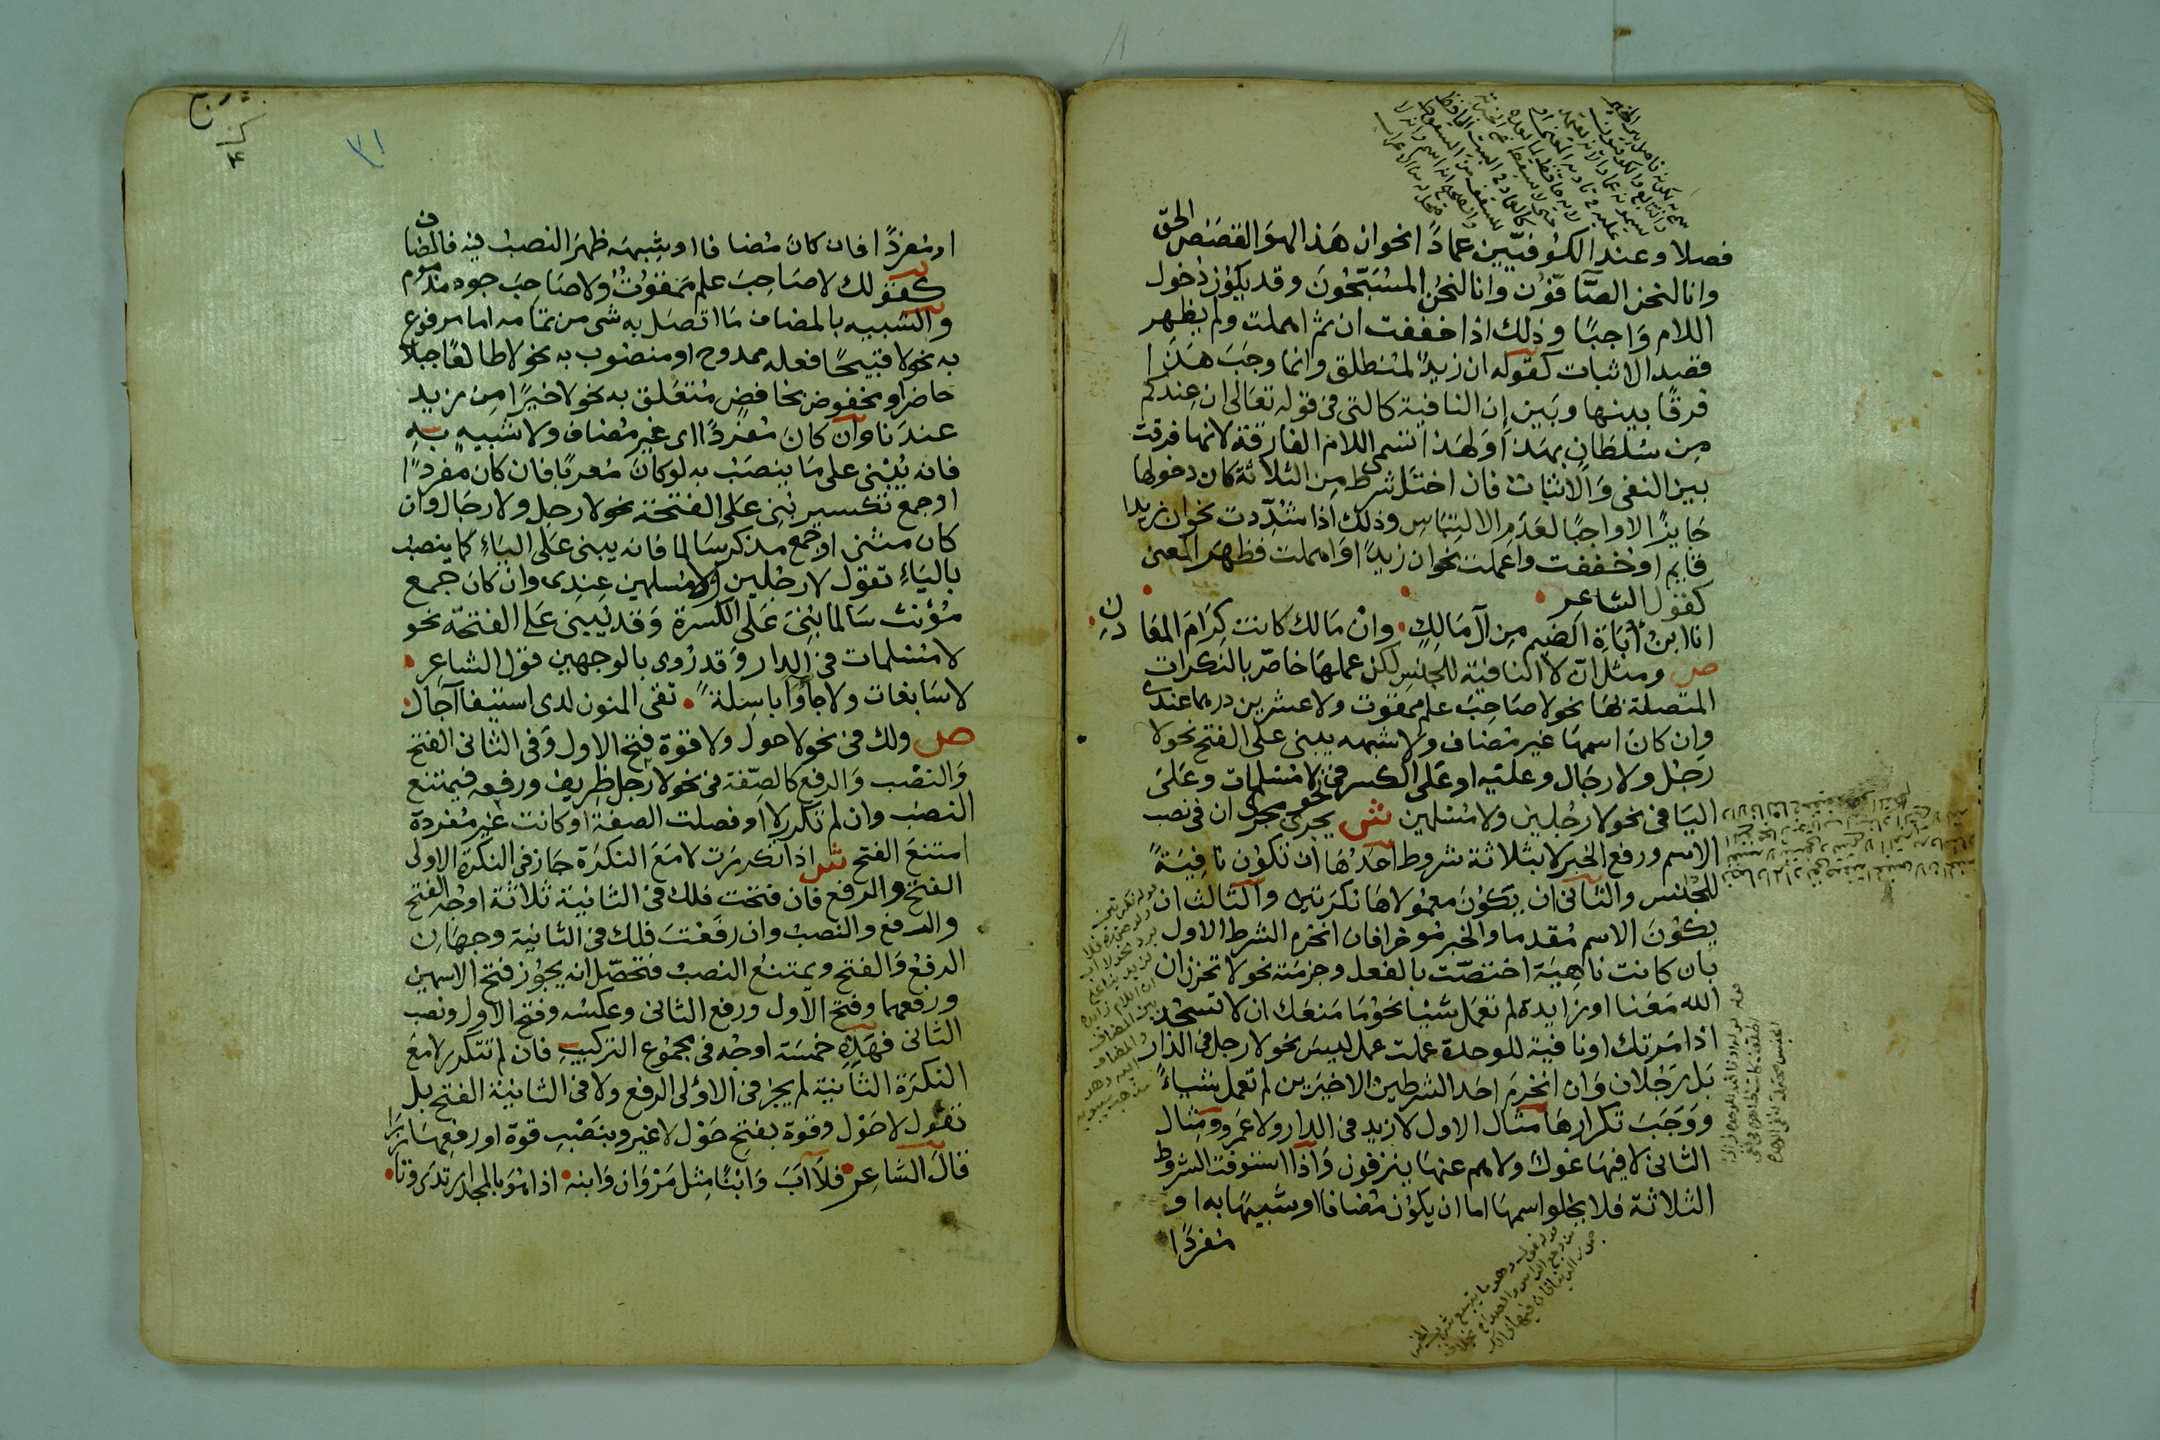 فصلا وعند الكوفيين عمادًا نحو ان هذا لهو القصص الحق
وانا لنحن الصافون وانا لنحن المسبحون وقد يكون دخول
اللام واجبًا وذلك اذا خففت ان ثم اهملت ولم يظهر
قصد الاثبات كقوله ان زيد لمنطلق وانما وجب هذا
فرقًا بينها وبين إن النافية كالتي في قوله تعالى ان عندكم
من سلطان بهذا ولهذا تسمى اللام الفارقة لانها فرقت
بين النفى والاثبات فان اختل شرط من الثلاثة كان دخولها
جايزًا لا واجبًا لعدم الالتباس وذلك اذا شددت نحو ان زيدا
قايم او خففت واعملت نحو ان زيدًا او اهملت فظهر المعنى
كقول الشاعر
انا ابن أباة الضيم من آل مالك وان مالك كانت كرام المعا
دن
ص ومثل ان لا النافية للجنس لكن عملها خاص بالنكرات
المتصلة بها نحو لا صاحب علم ممقوت ولا عشرين درهما عندى
وان كان اسمها غير مضاف ولا شبهه يبنى على الفتح نحو لا
رجل ولا رجال وعليه او على الكسر فى نحو لا مسلمات وعلى
اليا فى نحو لا رجلين ولا مسلمين ش يجرى مجرى ان فى نصب
الاسم ورفع الخبر لا بثلاثة شروط احدها ان تكون نافيةً
للجنس والثانى ان يكون معمولاها نكرتين والثالث ان
يكون الاسم مقدما والخبر موخرا فان انخرم الشرط الاول
بان كانت ناهية اختصت بالفعل وجزمته نحو لا تحزن ان
الله معنا او زايدة لم تعمل شيًا نحو ما منعك ان لا تسجد
اذ امرتك او نافية للوحدة عملت عمل ليس نحو لا رجل فى الدار
بل رجلان وان انخرم احد الشرطين الاخيرين لم تعمل شياءً
ووجب تكرارها مثال الاول لا زيد فى الدار ولا عمرو ومثال
الثانى لا فيها غول ولا هم عنها ينزفون واذا استوفت الشروط
الثلاثة فلا يخلوا اسمها اما ان يكون مضافا او شبيها به او
مفردًا
٣١
او مفردًا فان كان مضافا او شبهه ظهر النصب فيه فالمضاف
كقولك لا صاحب علم ممقوت ولا صاحب جود مذموم
والشبيه بالمضاف ما اتصل به شى من تمامه اما مرفوع
به نحو لا قبيحًا فعله ممدوح او منصوب به نحو لا طالعًا جبلا
حاضر او مخفوض بخافض متعلق به نحو لا خيرًا من زيد
عندنا وان كان مفردًا اى غير مضاف ولا شبيه به
فانه يبنى على ما ينصب به لو كان معربًا فان كان مفردًا
او جمع تكسير بنى على الفتحة نحو لا رجل ولا رجال وان
كان مثنى او جمع مذكر سالما فانه يبنى على الياء كما ينصب
بالياء تقول لا رجلين ولا مسلمين عندى وان كان جمع
مؤنث سالما بنى على الكسرة وقد يبنى على الفتحة نحو
لا مسلمات فى الدار وقد روى بالوجهين قول الشاعر
لا سابغات ولا جأواء باسلة تقى المنون لدى استيفا آجال
ص ولك فى نحو لا حول ولا قوة فتح الاول وفى الثانى الفتح
والنصب والرفع كالصفة فى نحو لا رجل ظريف ورفعه فيمتنع
النصب وان لم تكرر لا او فصلت الصفة او كانت غير مفردة
امتنع الفتح ش اذا تكررت لا مع النكرة جاز فى النكرة الاولى
الفتح والرفع فان فتحت فلك فى الثانية ثلاثة اوجه الفتح
والرفع والنصب وان رفعت فلك فى الثانية وجهان
الرفع والفتح ويمتنع النصب فتحصل انه يجوز فتح الاسمين
ورفعهما وفتح الاول ورفع الثانى وعكسه وفتح الاول ونصب
الثانى فهذه خمسة اوجه فى مجموع التركيب فان لم تتكرر لا مع
النكرة الثانية لم يجز فى الاولى الرفع ولا فى الثانية الفتح بل
تقول لا حول وقوة بفتح حول لا غير وبنصب قوة او رفعها
قال الشاعر فلا اب وابنا مثل مروان وابنه اذا هو بالمجد ارتدى وتأزرا